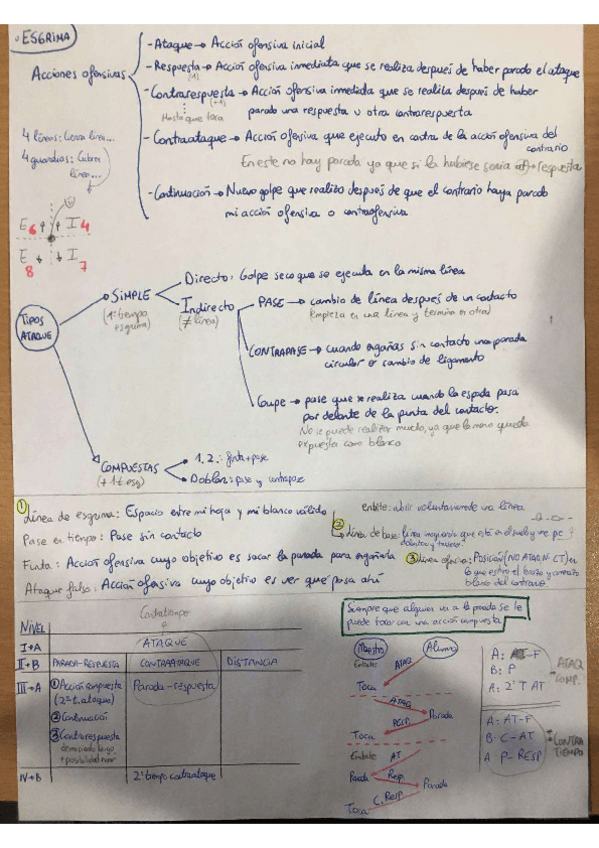 • ESGRIMA
Acciones ofensivas
- Ataque → Acción ofensiva inicial
- Respuesta → Acción ofensiva inmediata que se realiza después de haber parado el ataque
(1)
- Contrarespuesta → Acción ofensiva inmedida que se realiza después de haber
(+1)
Hasta que toca
parado una respuesta u otra contrarespuesta
- Contraataque → Acción ofensiva que ejecuto en contra de la acción ofensiva del
contrario
En este no hay parada ya que si la hubiese sería respuesta
- Continuación → Nuevo golpe que realizo después de que el contrario haya parado
mi acción ofensiva o contraofensiva
4 líneas:
4 guardias: Cubre
línea...
E 6 I 4
E 8 I 7
TIPOS ATAQUE
SIMPLE
(1 tiempo
esgrima)
Directo: Golpe seco que se ejecuta en la misma línea
Indirecto
(≠ línea)
PASE → cambio de línea después de un contacto
(empieza en una línea y termina en otra)
CONTRAPASE → cuando engañas sin contacto una parada
circular o cambio de ligamento
Coupe → pase que se realiza cuando la espada pasa
por delante de la punta del contacto.
No se puede realizar mucho, ya que la mano queda
expuesta como blanco
COMPUESTAS
(+ 1 t esg)
1.2.: finta + pase
Doblar: pase y contrapase
① Línea de esgrima: Espacio entre mi hoja y mi blanco válido
Pase en tiempo: Pase sin contacto
Finta: Acción ofensiva cuyo objetivo es sacar la parada para engañarla
Ataque falso: Acción ofensiva cuyo objetivo es ver que pasa ahí
enbite: abrir voluntariamente una línea
② Línea de base: línea imaginaria que está en el suelo y me
③ línea ofensiva: Posición (NO ATAQ N-CT) en
la que estiro el brazo y amenazo
blanco del contrario
Contratiempo
NIVEL
I → A
ATAQUE
II → B
PARADA-RESPUESTA
CONTRAATAQUE
DISTANCIA
III → A
① Acción compuesta
(2º t. ataque)
② Continuación
③ Contrarespuesta
demasiado largo
+ posibilidad
Parada - respuesta
IV → B
2º tiempo contraataque
Siempre que alguien va a la parada se le
puede tocar con una acción compuesta
Maestro
Alumno
Enbite
ATAQ
Toca
ATAQ
Parada
RESP
Toca
Enbite
AT
Parada
Resp
Parada
C. Resp
Toca
A: -F
B: P
A: 2º T AT
ATAQ
COMP.
A: AT-F
B: C-AT
A P-RESP
CONTRA
TIEMPO